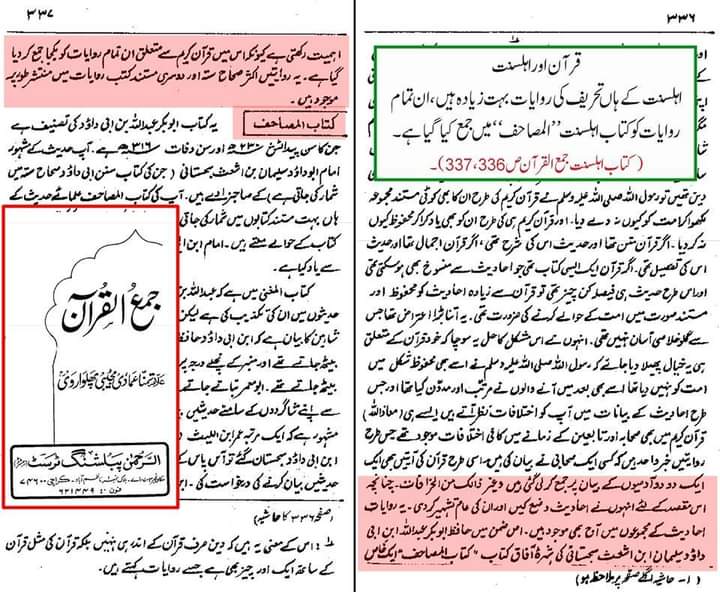 ۳۳۶
قرآن اور اہلسنت
اہلسنت کے ہاں تحریف کی روایات بہت زیادہ ہیں، ان تمام
روایات کو کتاب اہلسنت "المصاحف" میں جمع کیا گیا ہے۔
(کتاب اہلسنت جمع القرآن ص 336، 337)۔
دین تھیں تو رسول اللہ صلی اللہ علیہ وسلم نے قرآن کریم کی طرح ان کا بھی کوئی مستند مجموعہ
لکھا کر امت کو کیوں نہ دے دیا۔ اور قرآن کریم ہی کی طرح ان کو بھی یاد کرا کر محفوظ کیوں
نہ کر دیا۔ اگر قرآن متن تھا اور حدیث اس کی شرح تھی، اگر قرآن اجمال تھا اور حدیث
اس کی تفصیل تھی۔ اگر قرآن ایک ایسی کتاب تھی جو احادیث سے منسوخ بھی ہو سکتی تھی
اور اس طرح حدیث ہی فیصلہ کن چیز تھی تو قرآن سے زیادہ احادیث کو محفوظ اور
مستند صورت میں امت کے حوالے کرنے کی ضرورت تھی۔ یہ اتنا بڑا اعتراض تھا جس
سے گلو خلاصی آسان نہیں تھی۔ انہوں نے اس مشکل کا حل یہ سوچا کہ خود قرآن کے متعلق
ہی یہ خیال پھیلا دیا جائے کہ رسول اللہ صلی اللہ علیہ وسلم نے اسے بھی محفوظ شکل میں
امت کو نہیں دیا تھا اسے بھی بعد میں آنے والوں نے مرتب اور مدون کیا تھا اور جس
طرح احادیث کے بیانات میں آپ کو اختلافات نظر آتے ہیں ایسے ہی (معاذاللہ)
قرآن کریم میں بھی صحابہ اور تابعین کے زمانے میں کافی اختلافات موجود تھے جس طرح
روایتیں خبر واحد ہیں کو کسی ایک صحابی نے بیان کی ہیں۔ اسی طرح قرآن کی آیتیں بھی
ایک دو دو آدمیوں کے بیان پر جمع کر لی گئی ہیں وغیر ذالک من الخرافات۔ چنانچہ
اس مقصد کے لئے انہوں نے احادیث وضع کیں اور ان کی عام تشہیر کر دی۔ یہ روایات
احادیث کے مجموعوں میں آج بھی موجود ہیں۔ اس ضمن میں حافظ ابوبکر عبداللہ ابن ابی
داؤد سلیمان ابن اشعث سجستانی کی شہرۂ آفاق کتاب "کتاب المصاحف" ایک خاص
۱۔ حاشیہ اگلے صفحہ پر ملاحظہ ہو)
۳۳۷
اہمیت رکھتی ہے کیونکہ اس میں قرآن کریم سے متعلق ان تمام روایات کو یکجا جمع کر دیا
گیا ہے۔ یہ روایتیں اکثر صحاح ستہ اور دوسری مستند کتب روایات میں منتشر طور پر
موجود ہیں۔
کتاب المصاحف یہ کتاب ابوبکر عبداللہ بن ابی داؤد کی تصنیف ہے
جن کا سن پیدائش ۲۳۰ھ اور سن وفات ۳۱۶ھ ہے۔ آپ حدیث کے مشہور
امام ابو داؤد سلیمان بن اشعث سجستانی (جن کی کتاب سنن ابی داؤد صحاح ستہ میں
شمار کی جاتی ہے) کے صاحبزادے ہیں۔ آپ کی کتاب المصاحف علمائے حدیث کے
ہاں بہت مستند کتابوں میں شمار کی جاتی
کتاب کے حوالے ملتے ہیں۔ امام ابن ا
سے یاد کیا ہے۔
کتاب المغنی میں ہے کہ عبداللہ بن
حدیثوں میں ان کی تکذیب کی ہے لیکن
شاہین کا بیان ہے کہ ابن ابی داؤد حافظ
بیٹھ جاتے تھے اور منبر کے نچلے درجہ پر
بیٹھ جاتے تھے۔ ابو معمر بتاتے جاتے
سے اپنے شاگردوں کے سامنے حدیثیں
مشہور ہے کہ ایک مرتبہ عمرو ابن اللیث
ابن ابی داؤد سجستان گئے تو آس پاس کے
حدیثیں بیان کرنے کی درخواست کی۔ ابن
(صفحہ ۳۳۶ کا حاشیہ)
۱؎ اس کے معنی یہ ہیں کہ دین صرف قرآن کے اندر ہی نہیں بلکہ قرآن کی مثل قرآن
کے ساتھ ایک اور چیز بھی ہے جسے روایات کہتے ہیں۔
جمع القرآن
علامہ تمنا عمادی مجیبی پھلواروی
الرحمٰن پبلشنگ ٹرسٹ